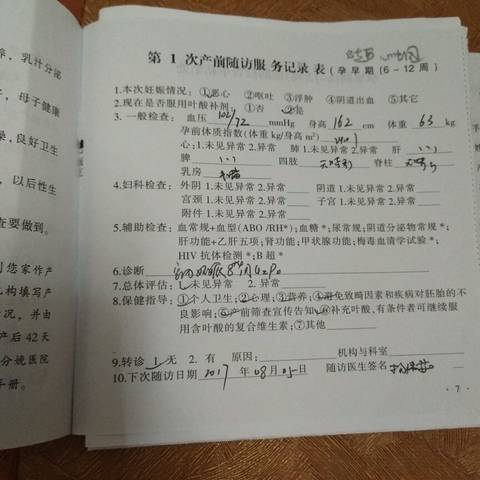 养，乳汁分泌
，母子健康
燥,良好卫生
，以后性生
查要做到。
到您家作产
机构填写产
况，并由
产后 42天
分娩医院
手册。
第 1 次产前随访服务记录表(孕早期(6－12周)
1.本次妊娠情况: ①恶心 ②呕吐 ③浮肿 ④阴道出血 ⑤其它
2.现在是否服用叶酸补剂: ①否 ②是
3.一般检查: 血压 102/72 mmHg 身高 162 cm 体重 63 kg
孕前体质指数(体重kg/身高m²)
心:1.未见异常 2.异常 肺 1.未见异常 2.异常 肝 (-)
脾 (-) 四肢 脊柱
乳房
4.妇科检查: 外阴 1.未见异常 2.异常 阴道 1.未见异常 2.异常
宫颈 1.未见异常 2.异常 子宫 1.未见异常 2.异常
附件 1.未见异常 2.异常
5.辅助检查: 血常规+血型(ABO /RH*);血糖*;尿常规;阴道分泌物常规*;
肝功能+乙肝五项;肾功能;甲状腺功能;梅毒血清学试验*;
HIV 抗体检测*;B 超*
6.诊断
7.总体评估: 1.未见异常 2. 异常
8.保健指导: ①个人卫生;②心理;③营养;④避免致畸因素和疾病对胚胎的不
良影响;⑤产前筛查宣传告知;⑥补充叶酸,有条件者可继续服
用含叶酸的复合维生素;⑦其他
9.转诊 1.无 2. 有 原因: 机构与科室
10.下次随访日期 2017 年 08月 05日 随访医生签名
· 7 ·